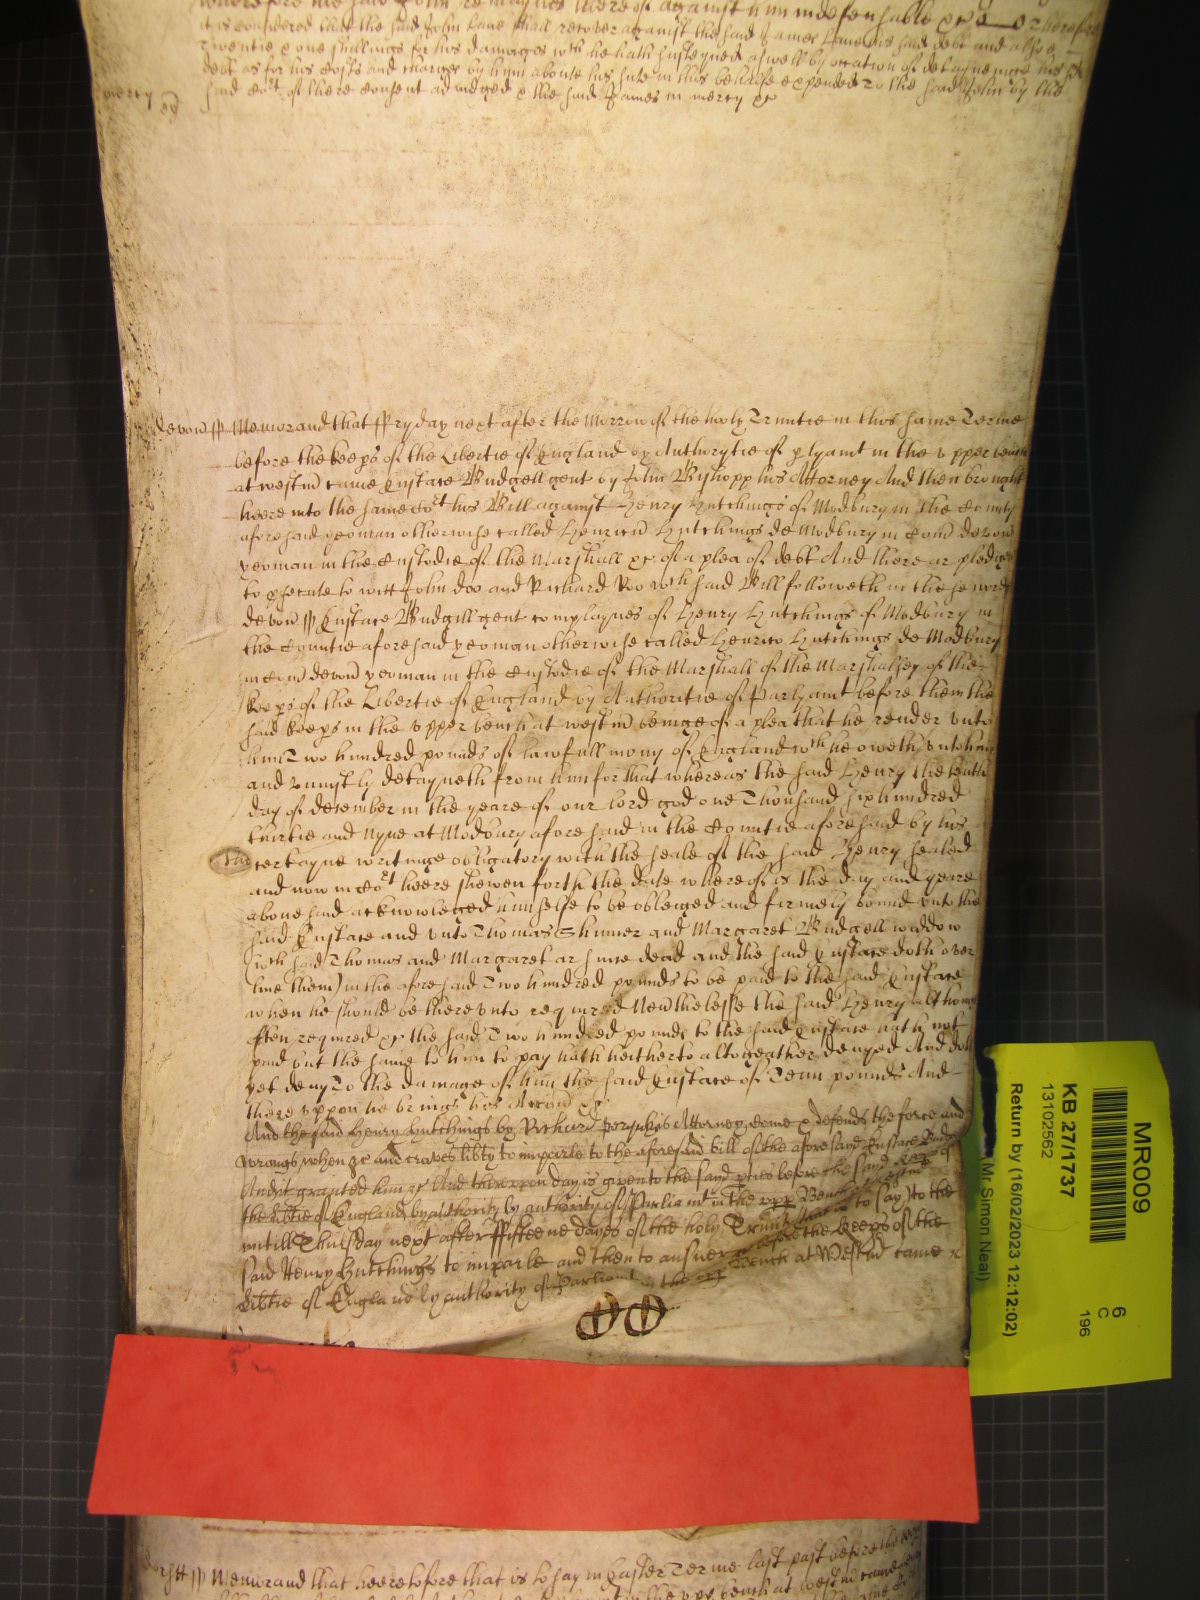 it is considered that the said John Lane shall recover against the said James Lane his said debt and also
twentie & one shillings for his damages wch he hath susteyned aswell by occation of detayneinge his sd
debt as for his costs and charges by him aboute his sute in this behalfe expended to the said John by the
mercy said Cort of there consent adiudged & the said James in mercy &c
Devon ss Memorand that Fryday next after the Morrow of the holy Trinitie in this same Terme
before the keeps of the Libertie of England by Authorytie of plyamt in the upper bench
at westm came Eustace Budgell gent by John Bishopp his Attorney And then brought
heere into the same Cort his Bill against Henry Hutchings of Modbury in the County
aforesaid yeoman otherwise called Henricu Hutchings de Modbury in Com Devon
yeoman in the Custodie of the Marshall &c of a plea of debt And there ar pledges
to psecute to witt John Doo and Richard Roo wch said Bill followeth in these words
Devon ss Eustace Budgill gent complaynes of Henry Hutchings of Modbury in
the Countie aforesaid yeoman otherwise called Henrico Hutchings de Modbury
in Com Devon yeoman in the Custodie of the Marshall of the Marshallsey of the
keeps of the Libertie of England by Authoritie of Parlyamt before them the
said keeps in the upper bench at westm beinge of a plea that he render unto
him Two hundred pounds of lawfull mony of England wch he oweth unto him
and uniustly detayneth from him for that whereas the said Henry the tenth
day of December in the yeare of our lord god one Thousand six hundred
thirtie and Nyne at Modbury aforesaid in the Countie aforesaid by his
certayne writinge obligatory with the seale of the said Henry sealed
and now in Cort heere shewen forth the date whereof is the day and yeare
abovesaid acknowledged himselfe to be obleiged and firmely bound unto the
said Eustace and unto Thomas Skinner and Margaret Budgell widdow
(wch said Thomas and Margaret ar since dead and the said Eustace doth over
live them) in the aforesaid Two hundred pounds to be paid to the said Eustace
when he should be thereunto required Nevthelesse the said Henry although
often required &c the said Two hundred pounds to the said Eustace hath not
paid but the same to him to pay hath heitherto altogeather denyed And doth
yet deny To the damage of him the said Eustace of Tenn pounds And
thereuppon he brings his Accon &c
And the said Henry Hutchings by Richard his Attorney come & defends the force and
wronge when &c and craves libty to imparle to the aforesaid bill of the aforesaid Eustace
And it granted him &c And thereupon day is given to the said pties before the said keeps of
the Libtie of England by authority by authority of Parliamt in the upp Bench
untill Thursday next after Fifteene dayes of the holy Trinity that is to say) to the
said Henry Hutchings to imparle and then to answer before the Keeps of the
Libtie of England by authority of Parliamt in the upp Bench at Westm came
ss Memorand that heeretofore that is to say in Easter Terme last past before the
in the upp bench at westm came
MR009
KB 27/1737
13102562
Return by (16/02/2023 12:12:02)
Mr Simon Neal)
6
C
196